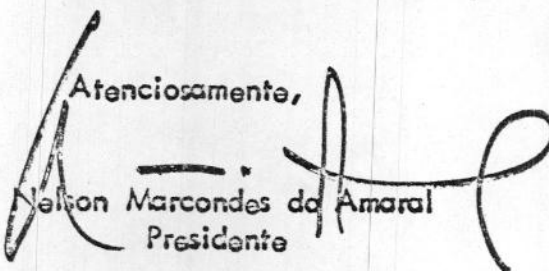 Atenciosamente,
Nelson Marcondes do Amaral
Presidente